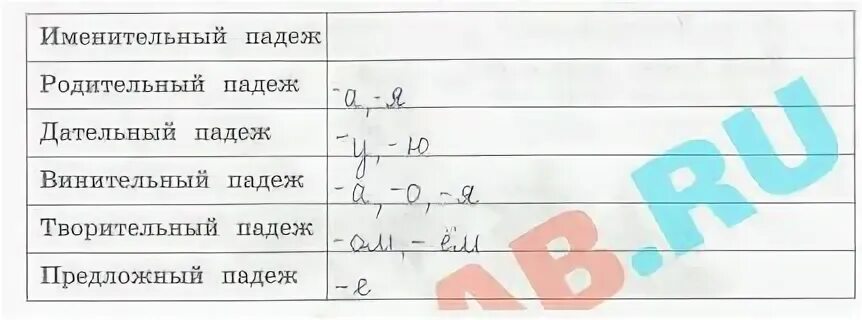 Именительный падеж
Родительный падеж -а, -я
Дательный падеж -у, -ю
Винительный падеж -а, -о, -я
Творительный падеж -ом, -ём
Предложный падеж -е
AB.RU